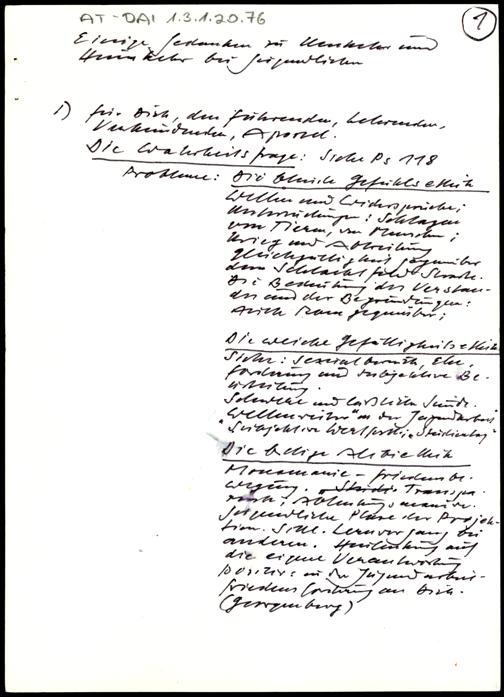 AT-DAI 1.3.1.20.76
1
Einige Gedanken zu Umkehr und
Heimkehr bei Jugendlichen
1) für Dich, den Führenden, Lehrenden,
Verkündenden, Apostel.
Die Wahrheitsfrage: Siehe Ps 118
Probleme: Die blinde Gefühlsethik
Wellen und Widersprüche;
: Schlagen
von Tieren, von Menschen;
Krieg und Abtreibung
Gleichgültigkeit gegenüber
dem Schlachtfeld Strasse.
Die Bedeutung des Verstan-
des und der Begründungen:
Auch Rom gegenüber;
Die weiche Gefälligkeitsethik
Siehe: Sexualberatg, Ehe,
forschung und subjektive Be-
urteilung.
Schwere und lässliche Sünde.
"Wellenreiter" in der Jugendarbeit
"Subjektive
Die billige Alibiethik
Monomanie - Friedensbe-
wegung. Transpa-
rent; Ablenkungsmanöver.
Jugendliche Phase der Projek-
tion. Schl. Lernvorgang bei
anderen. Hinlenkung auf
die eigene Verantwortung
positiv: in der Jugendarbeit
Friedensforschung an Dich.
(Georgenberg)